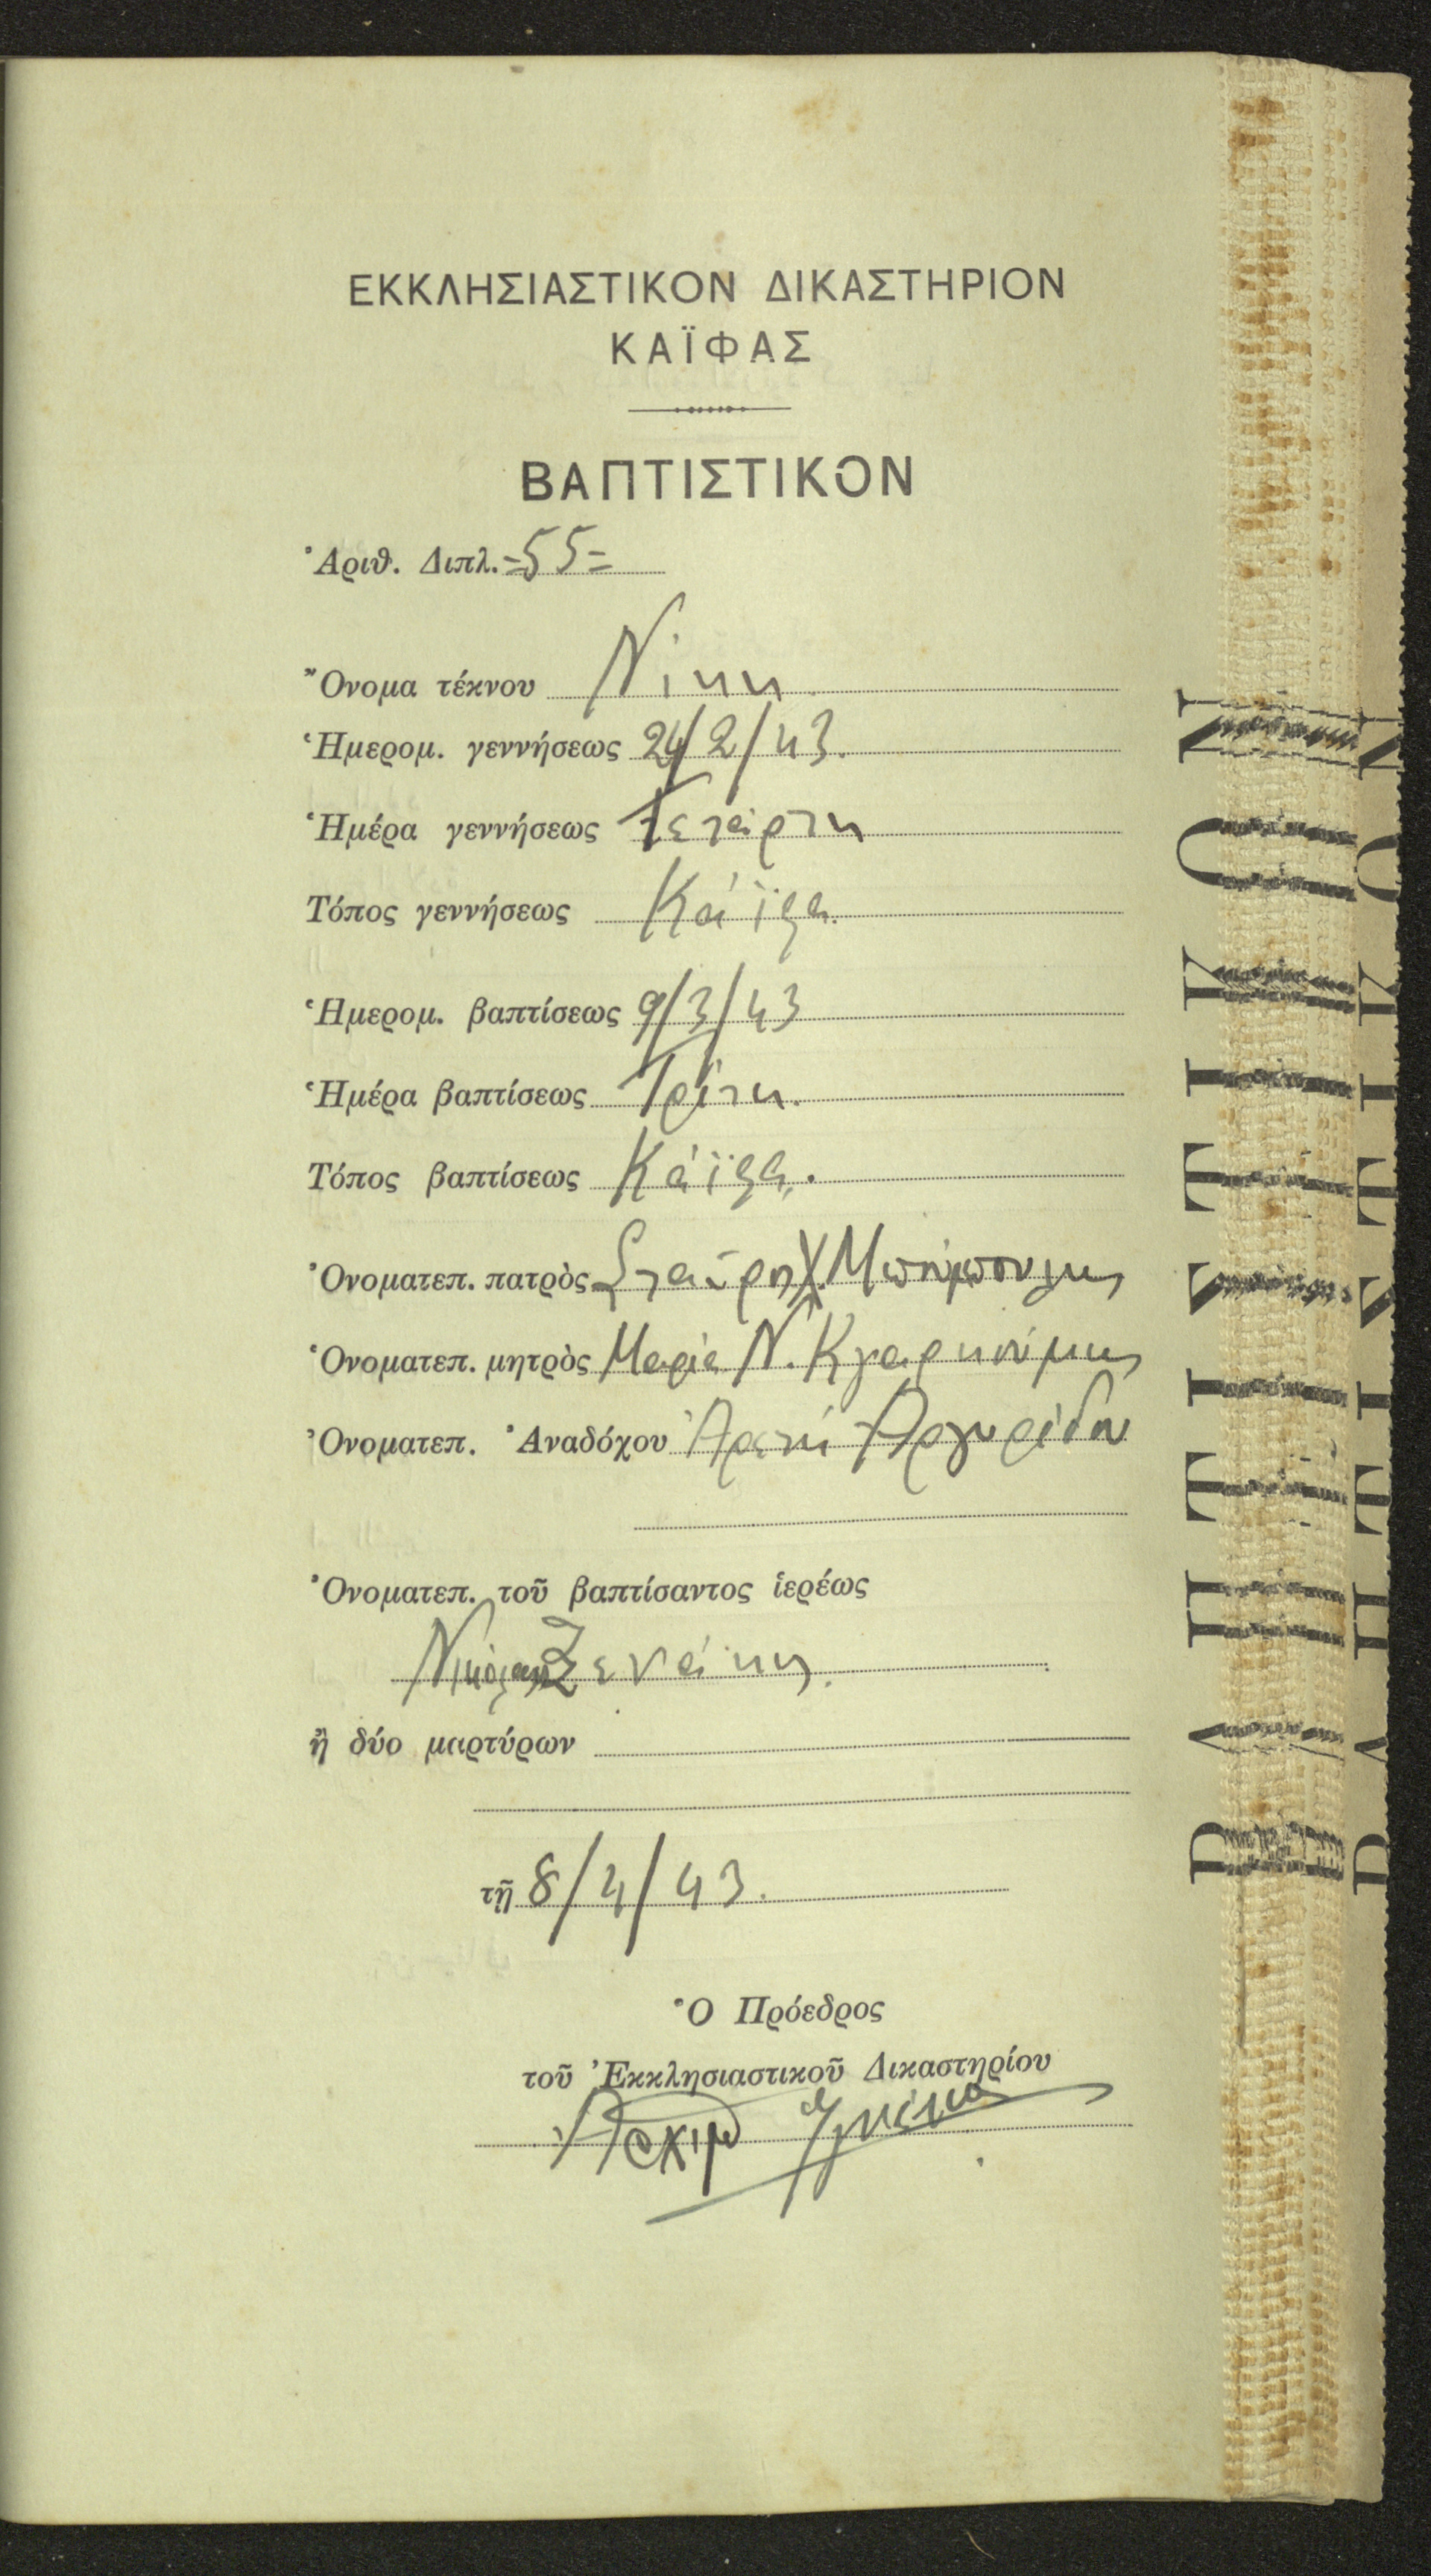 ΕΚΚΛΗΣΙΑΣΤΙΚΟΝ ΔΙΚΑΣΤΗΡΙΟΝ
ΚΑΪΦΑΣ
ΒΑΠΤΙΣΤΙΚΟΝ
Ἀριθ. Διπλ. =55=
Ὄνομα τέκνου Νίκη.
Ἡμερομ. γεννήσεως 24/2/43.
Ἡμέρα γεννήσεως Τετάρτη
Τόπος γεννήσεως Κάϊφα.
Ἡμερομ. βαπτίσεως 9/3/43
Ἡμέρα βαπτίσεως Τρίτη.
Τόπος βαπτίσεως Κάϊφα.
Ὀνοματεπ. πατρὸς Σταῦρος Χ.
Ὀνοματεπ. μητρὸς Μαρία Ν.
Ὀνοματεπ. Ἀναδόχου Ἀρετή Ἀργυρίδου
Ὀνοματεπ. τοῦ βαπτίσαντος ἱερέως
Νικόλαος Ξενάκης.
ἢ δύο μαρτύρων
τῇ 8/4/43.
Ὁ Πρόεδρος
τοῦ Ἐκκλησιαστικοῦ Δικαστηρίου
Ἀρχιμ
ΒΑΠΤΙΣΤΙΚΟΝ
ΒΑΠΤΙΣΤΙΚΟΝ